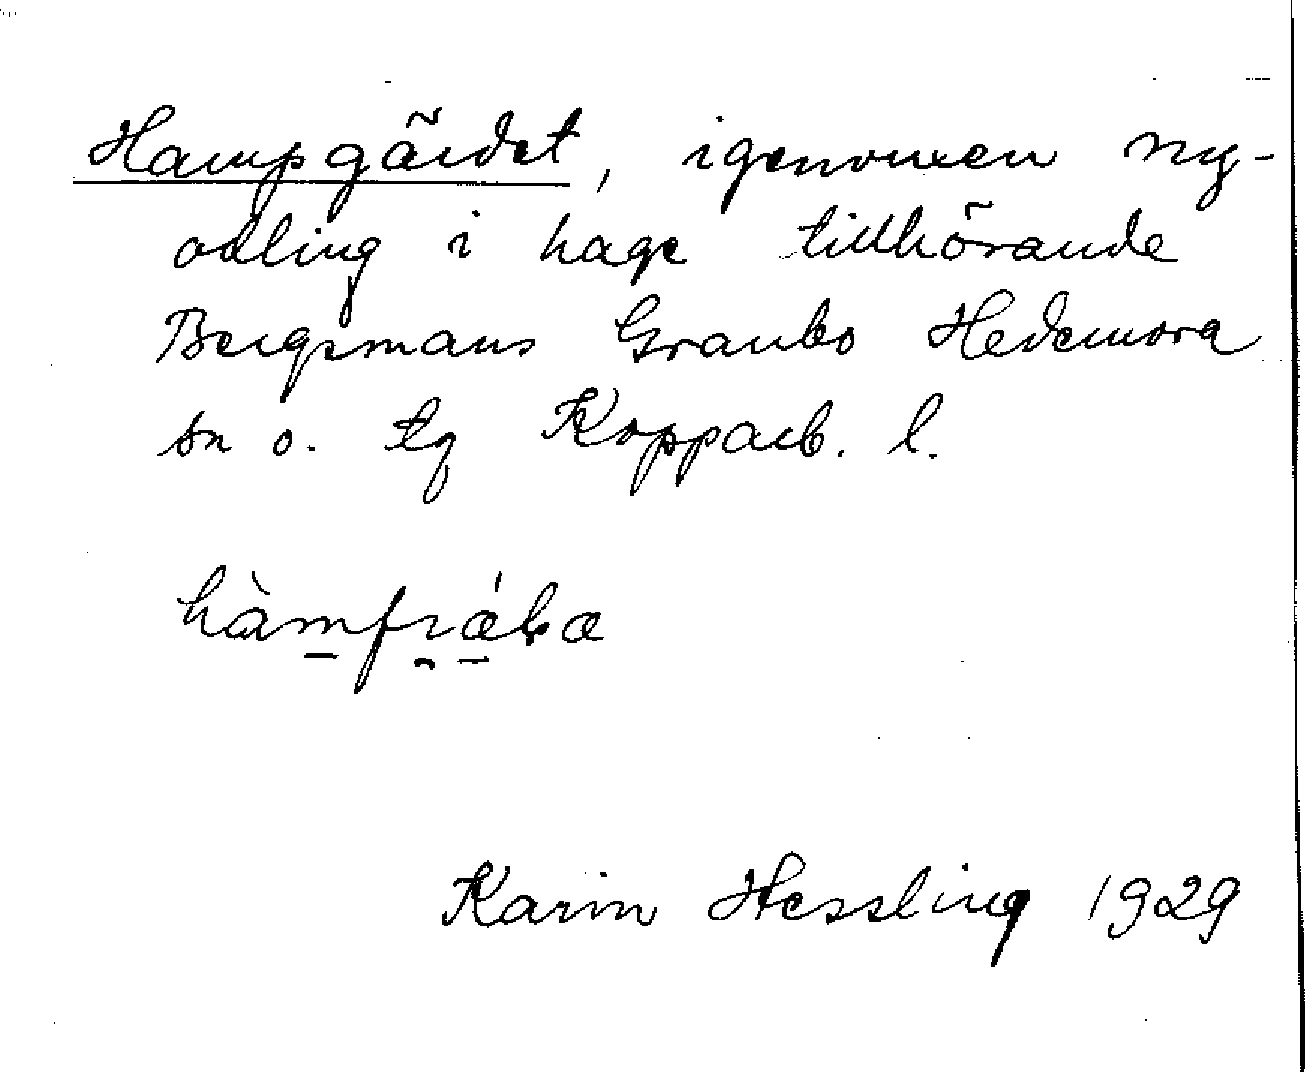 Hampgärdet, igenvuxen ny-
odling i hage tillhörande
Bergsmans Granbo Hedemora
sn o. tg Kopparb. l.
Karin Hessling 1929